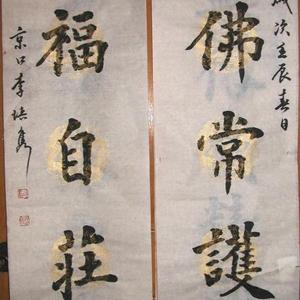 歲次壬辰春日
佛常護
福自莊
京口李培隽